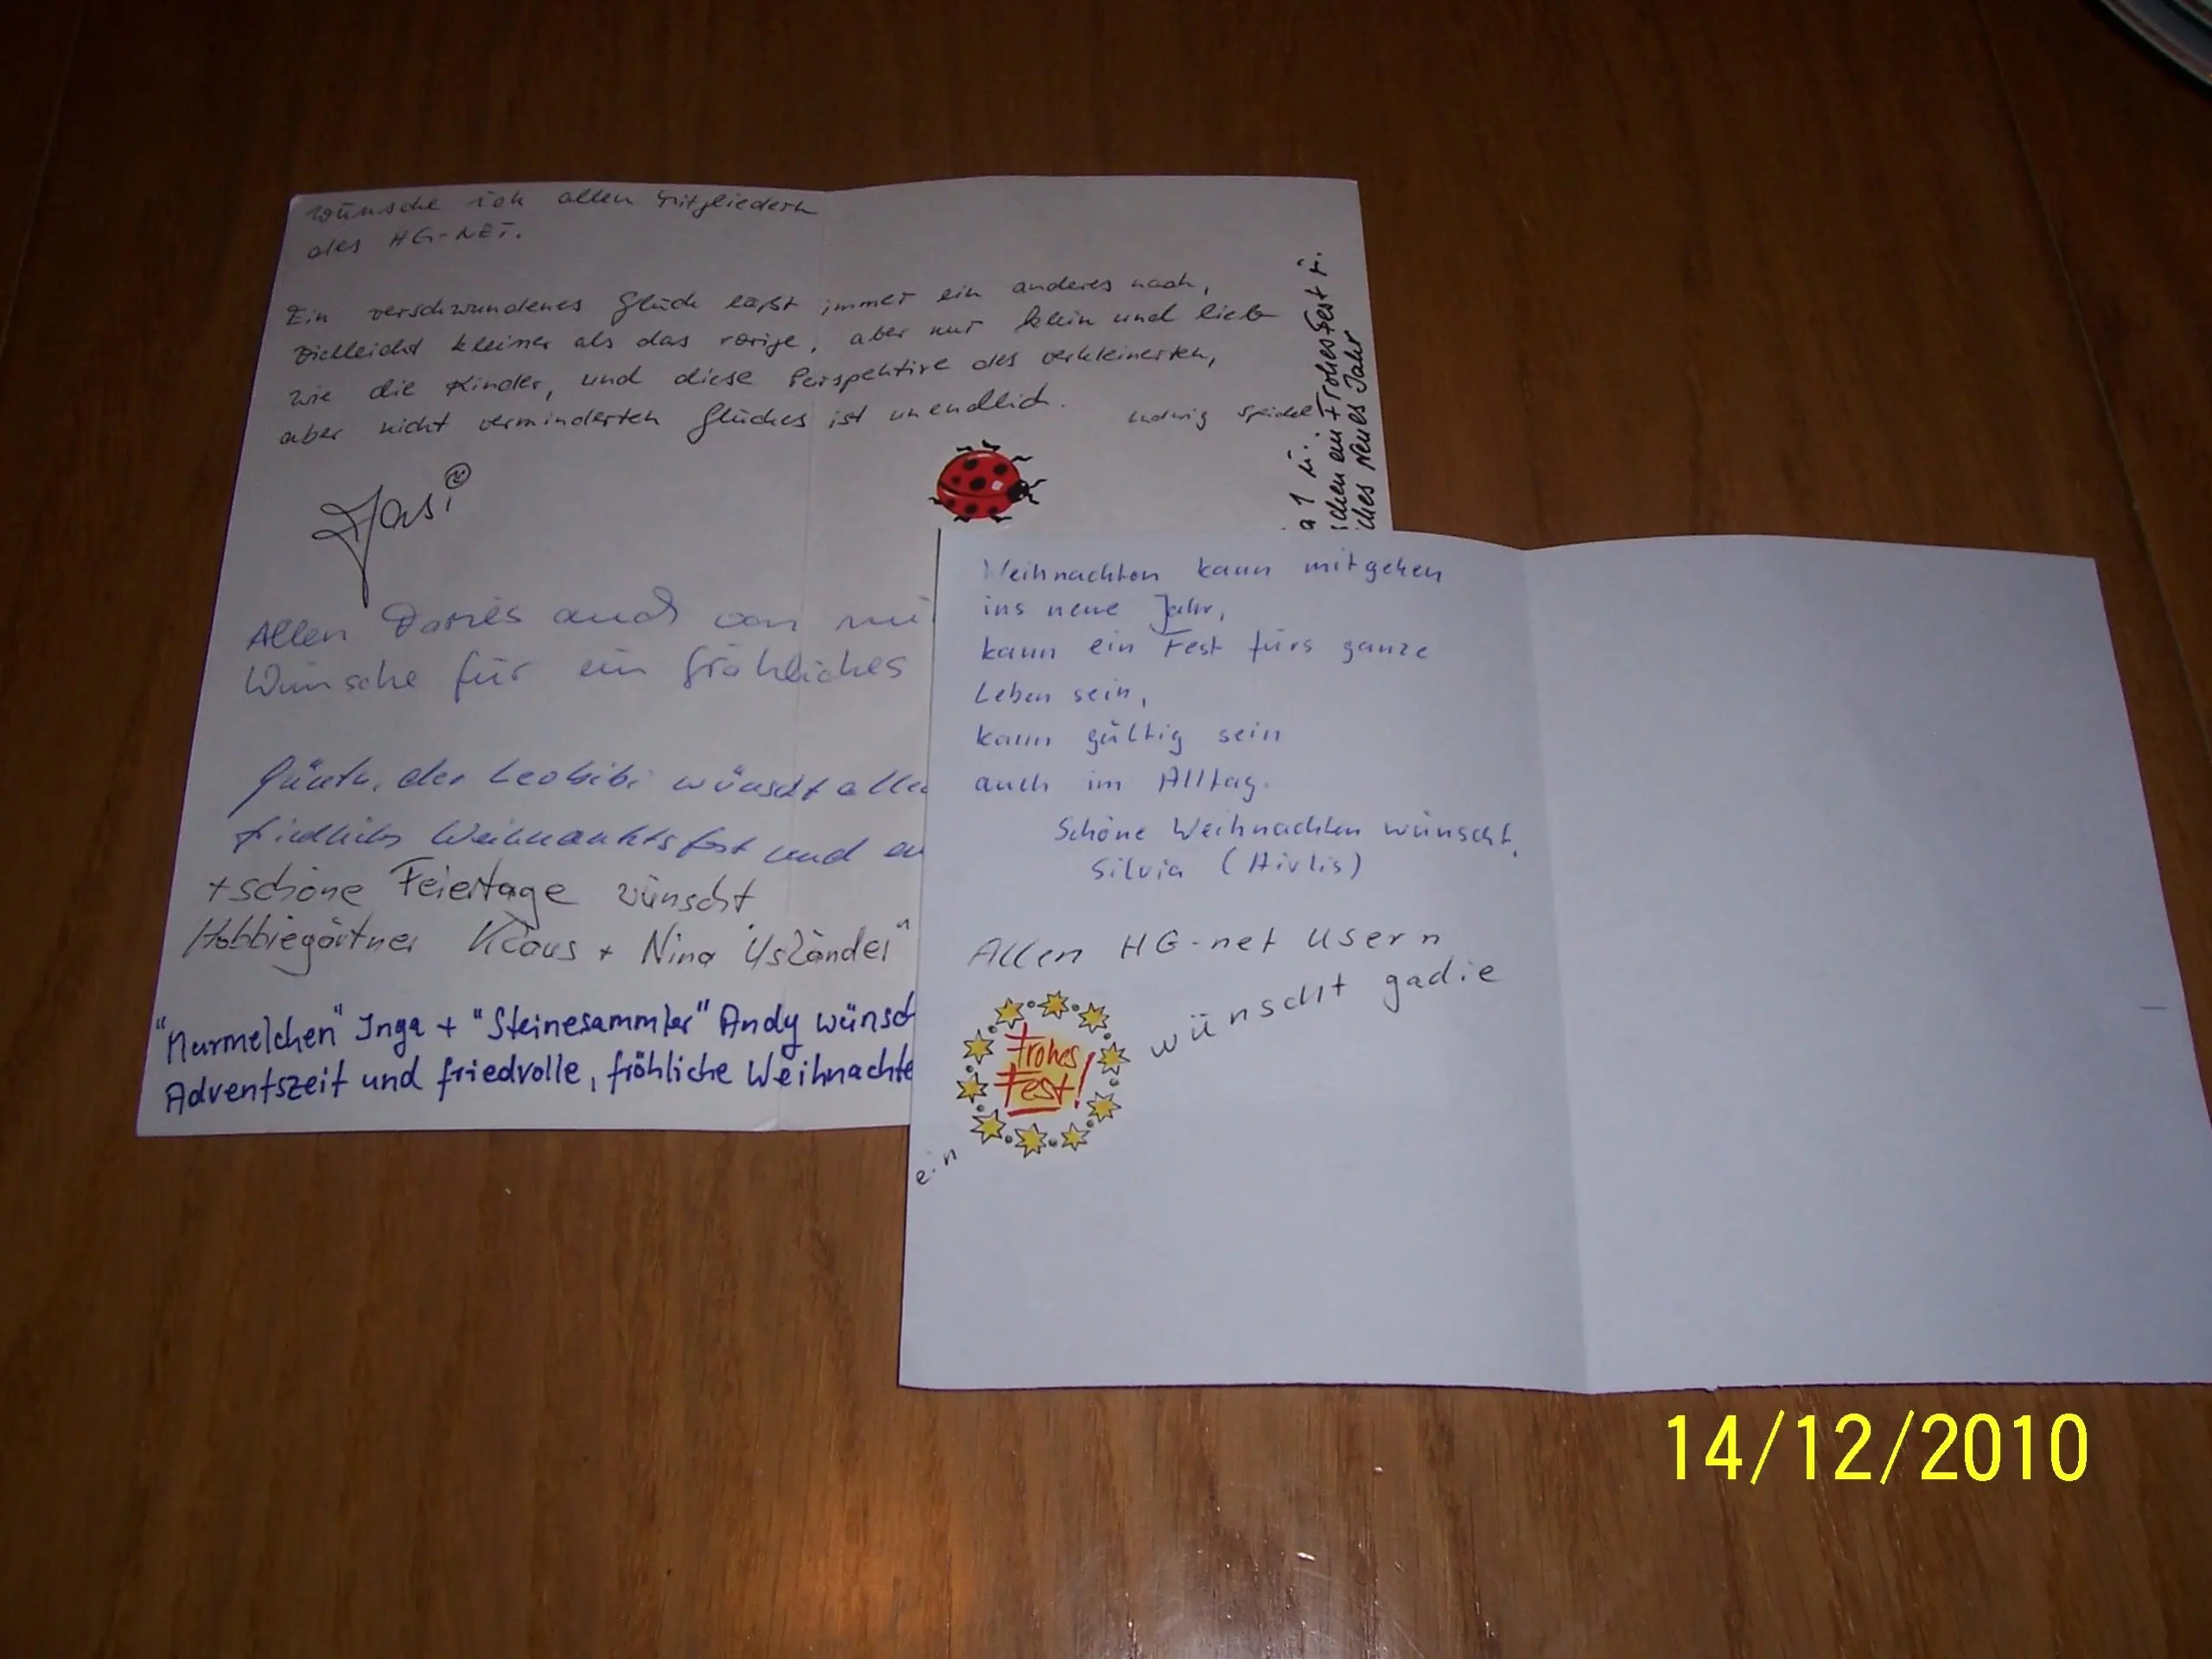 wünsche ich allen Mitgliedern
des HG-NET.
Ein verschwundenes Glück läßt immer ein anderes nach,
vielleicht kleiner als das vorige, aber nur klein und lieb
wie die Kinder, und diese Perspektive des verkleinerten,
aber nicht verminderten Glückes ist unendlich.
Ludwig Speidel
Jasi
Allen auch von
Wünsche für ein fröhliches
der wünscht alle
Weihnachtsfest und
+ schöne Feiertage wünscht
Hobbiegärtner Klaus + Nina "Isländer"
"Murmelchen" Inga + "Steinesammler" Andy wünsch
Adventszeit und friedvolle, fröhliche Weihnachte
ein Frohes Fest
Neues Jahr
Weihnachten kann mitgehen
ins neue Jahr,
kann ein Fest fürs ganze
Leben sein,
kann gültig sein
auch im Alltag.
Schöne Weihnachten wünscht,
Silvia (Aivlis)
Allen HG-net Usern
wünscht gadie
ein
Frohes
Fest!
14/12/2010